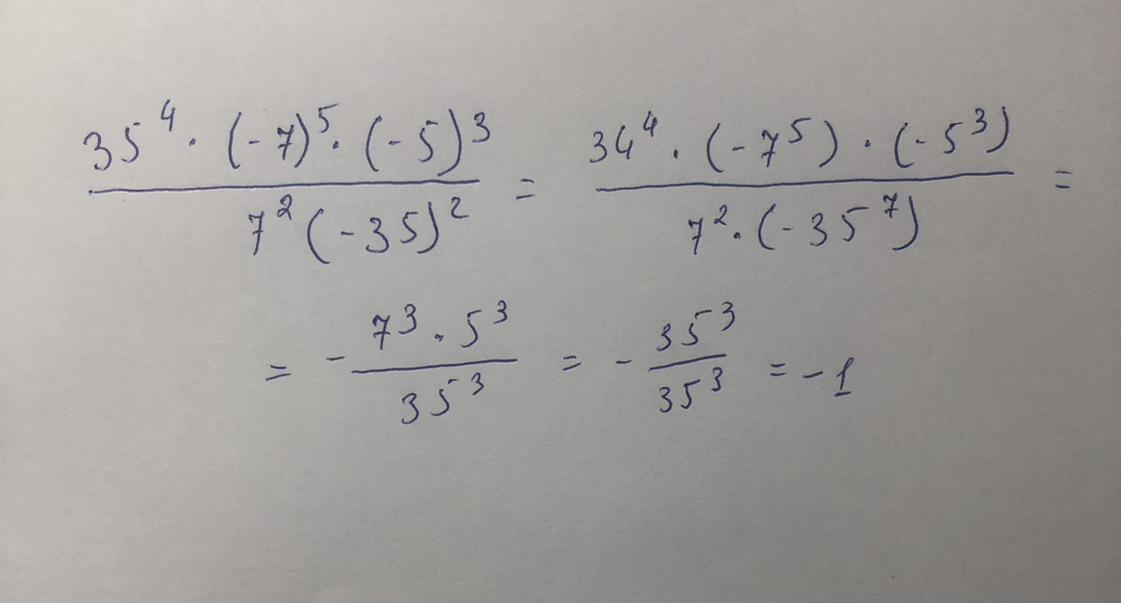 \frac{35^4 \cdot (-7)^5 \cdot (-5)^3}{7^2 (-35)^2} = \frac{34^4 \cdot (-7^5) \cdot (-5^3)}{7^2 \cdot (-35^7)} =
= - \frac{7^3 \cdot 5^3}{35^3} = - \frac{35^3}{35^3} = -1